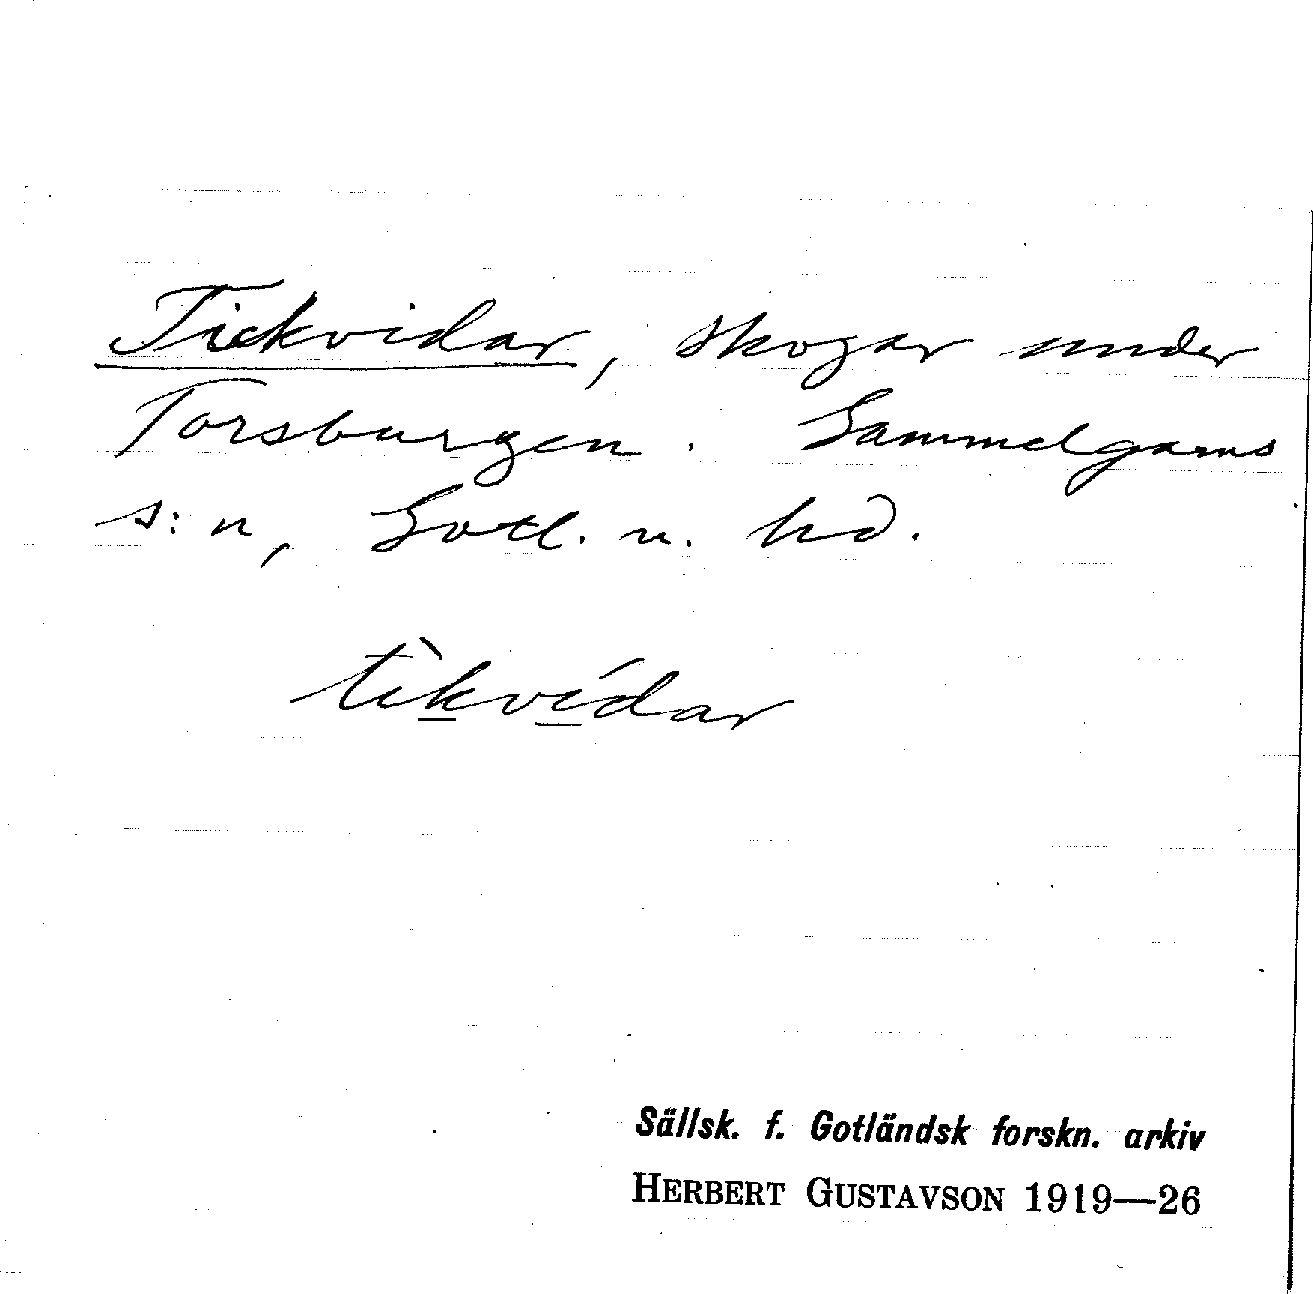 Tickvidar, skogar under
Torsburgen. Gammelgarns
s:n, Gotl. n. hd.
tìkvídar
Sällsk. f. Gotländsk forskn. arkiv
HERBERT GUSTAVSON 1919—26